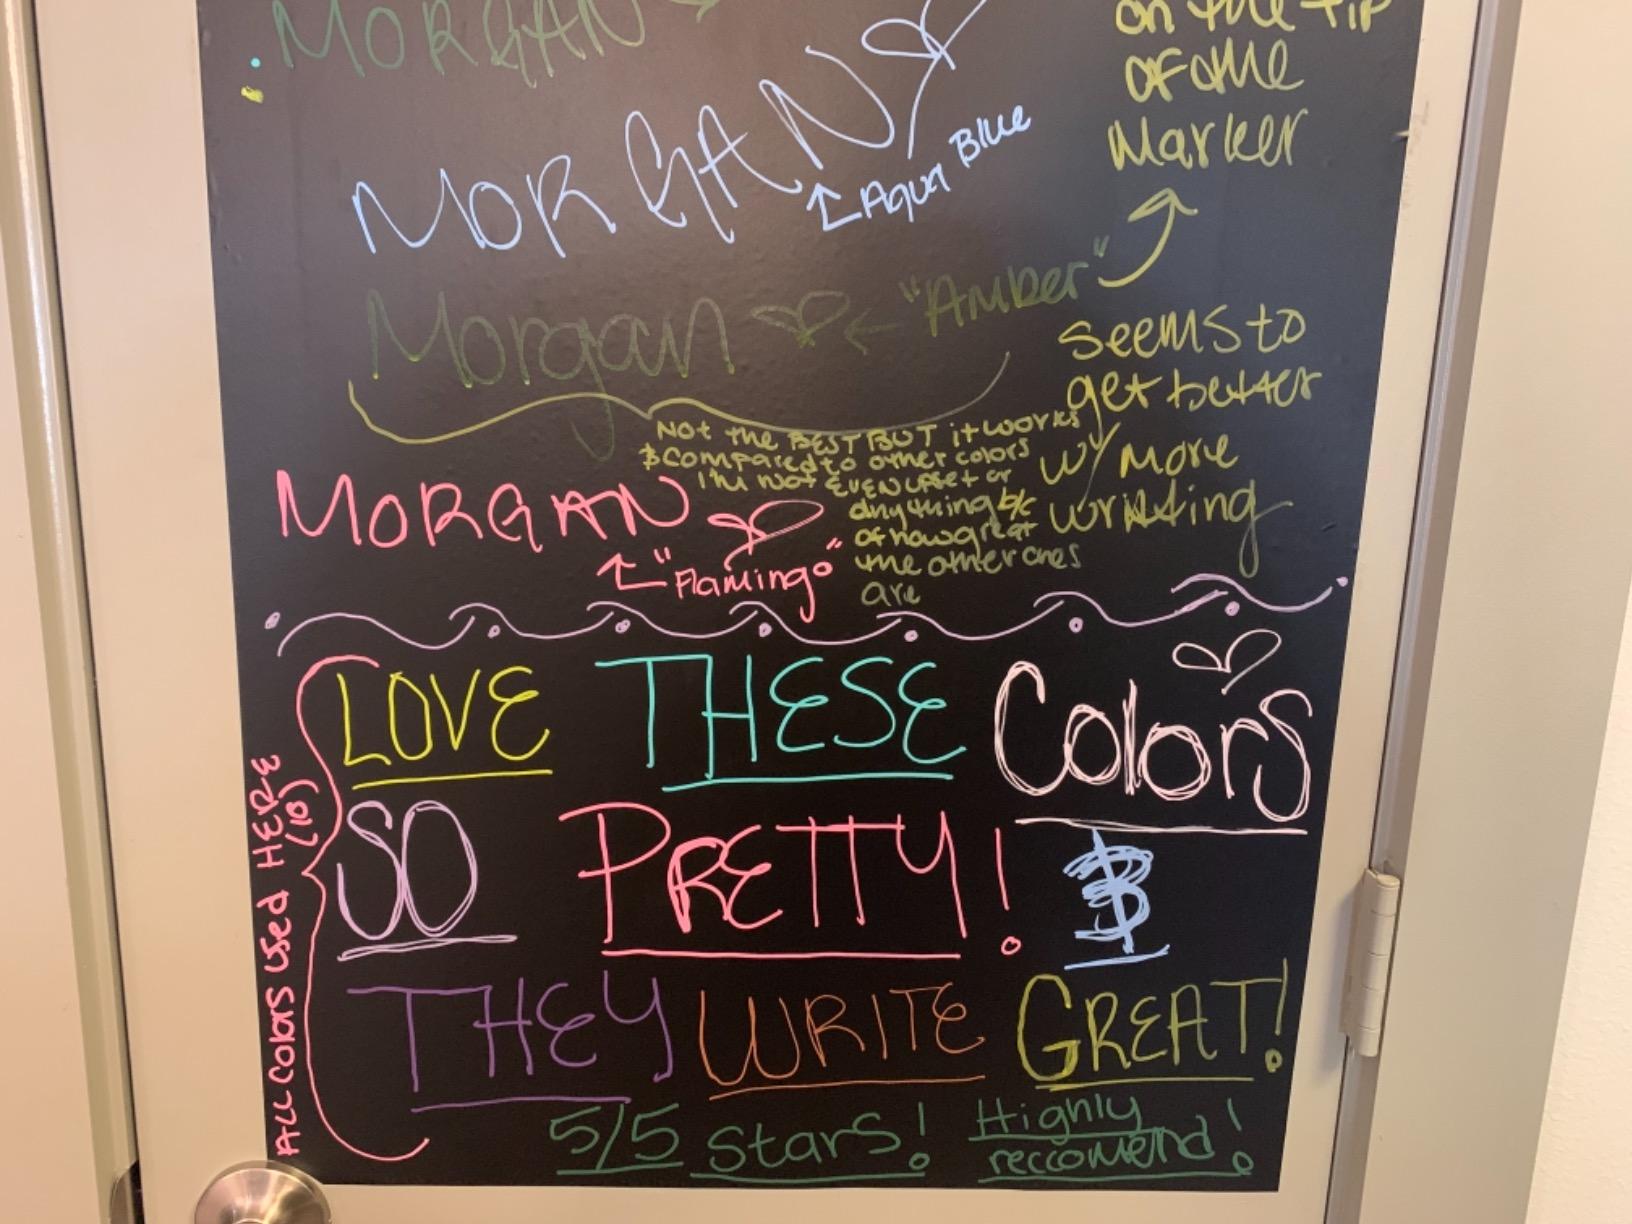 MORGAN
on the tip
of the
Marker
MORGAN
Aqua Blue
Morgan
"Amber"
seems to
get better
w/ more
writing
Not the BEST BUT it works
& compared to other colors
I'm not EVEN upset or
anything b/c
of how great
the other ones
are
MORGAN
"Flamingo"
LOVE THESE Colors
SO PRETTY! &
THEY WRITE GREAT!
5/5 Stars! Highly
reccomend!
ALL COLORS USED HERE
(10)